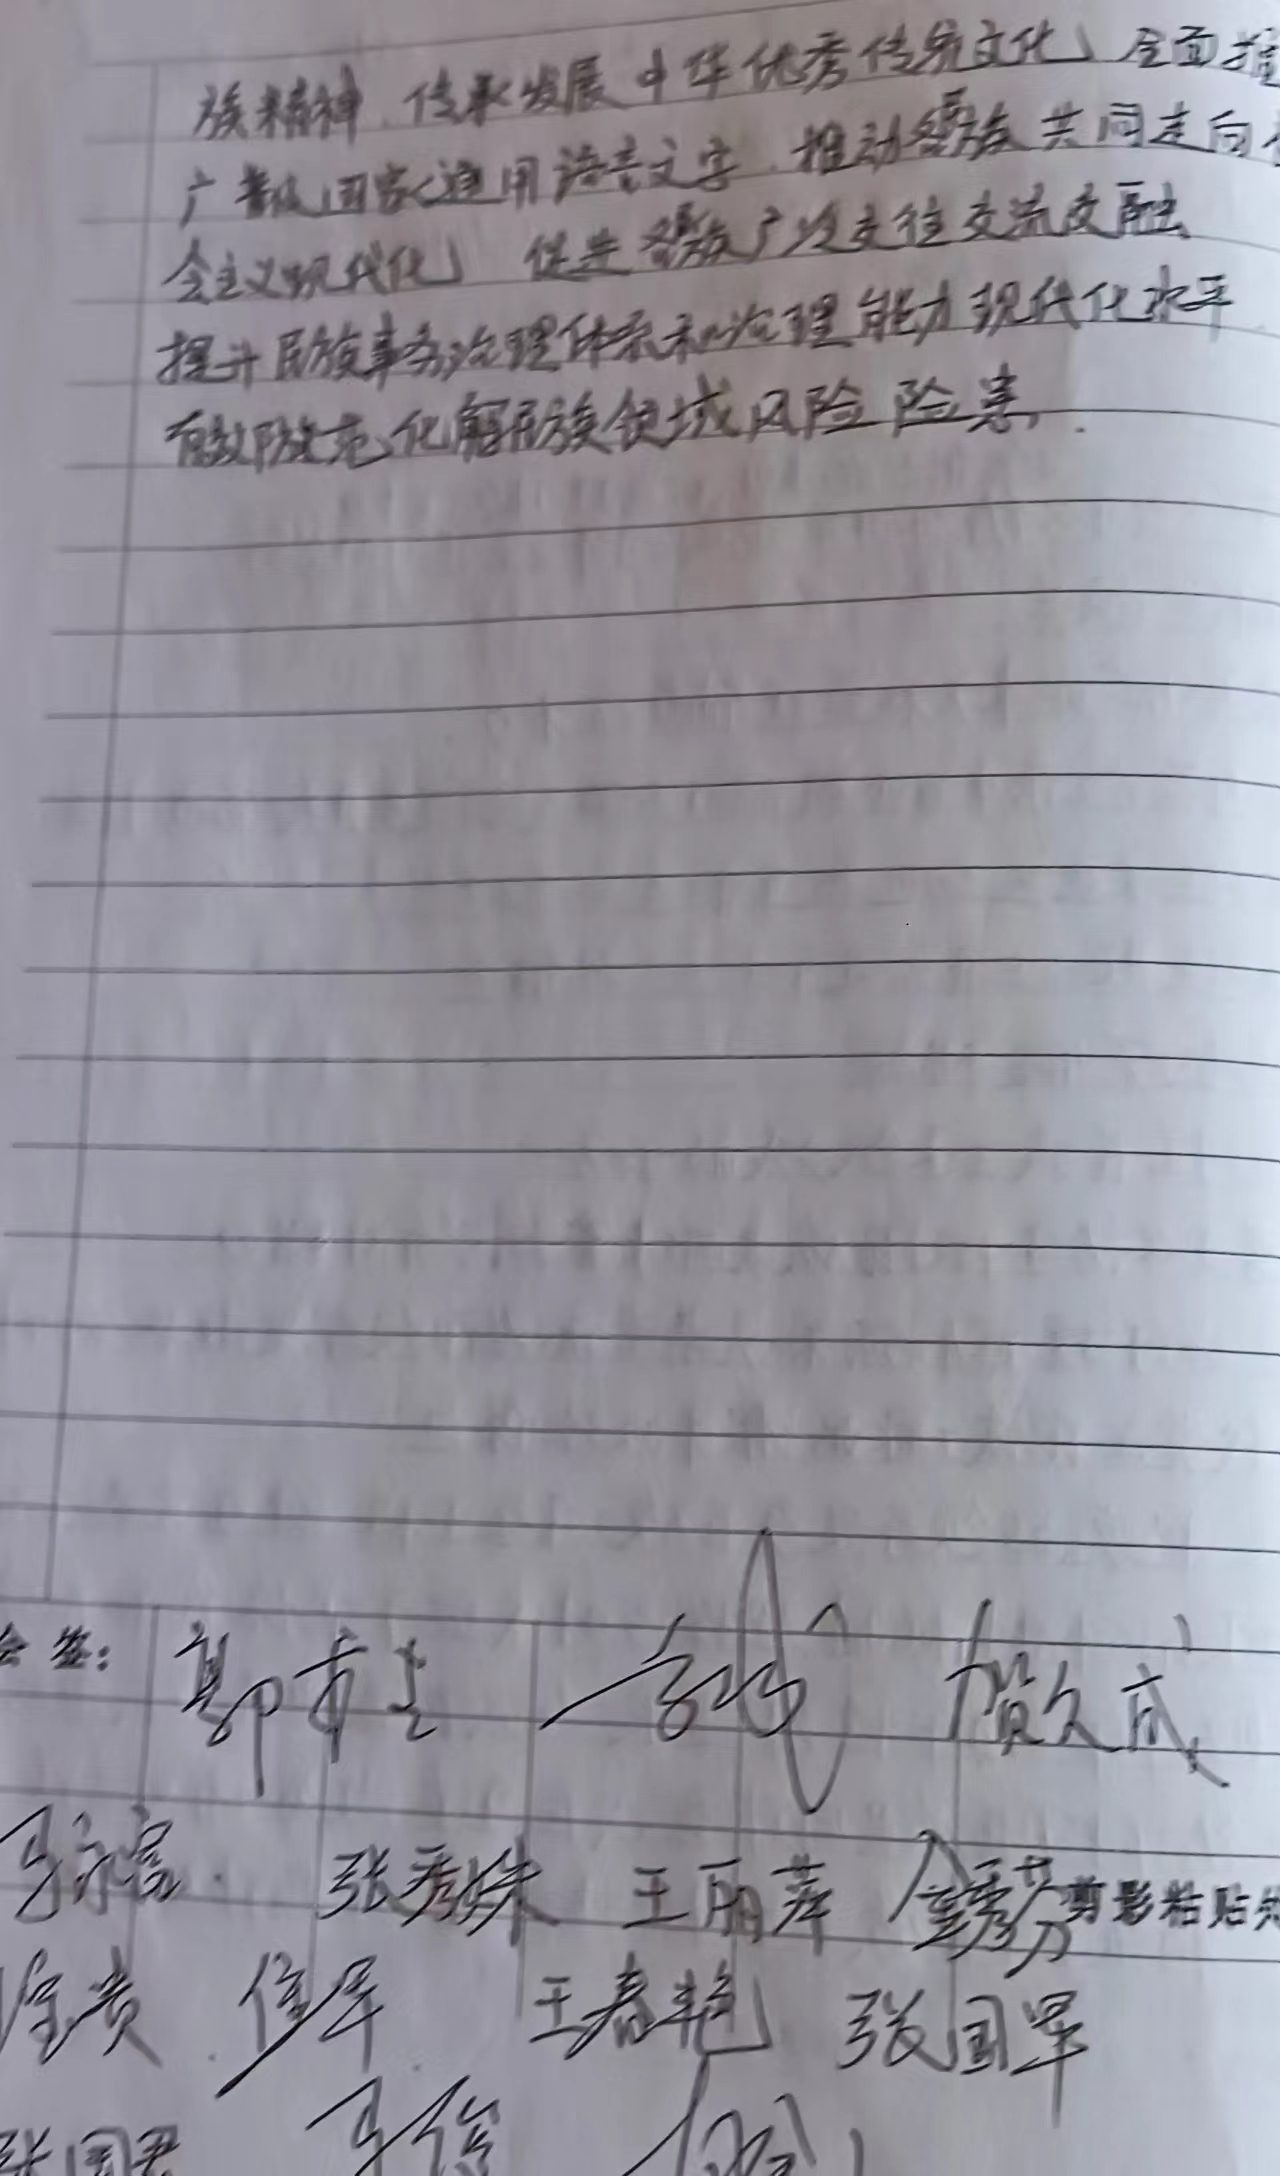 族精神、传承发展中华优秀传统文化，全面推
广普及国家通用语言文字、推动各族共同走向社
会主义现代化，促进各族广泛交往交流交融、
提升民族事务治理体系和治理能力现代化水平
有效防范化解民族领域风险隐患.
会签：郭 贺久成
张秀妹 王丽萍 金秀芬 剪影粘贴处
王春艳 张国军
张国君